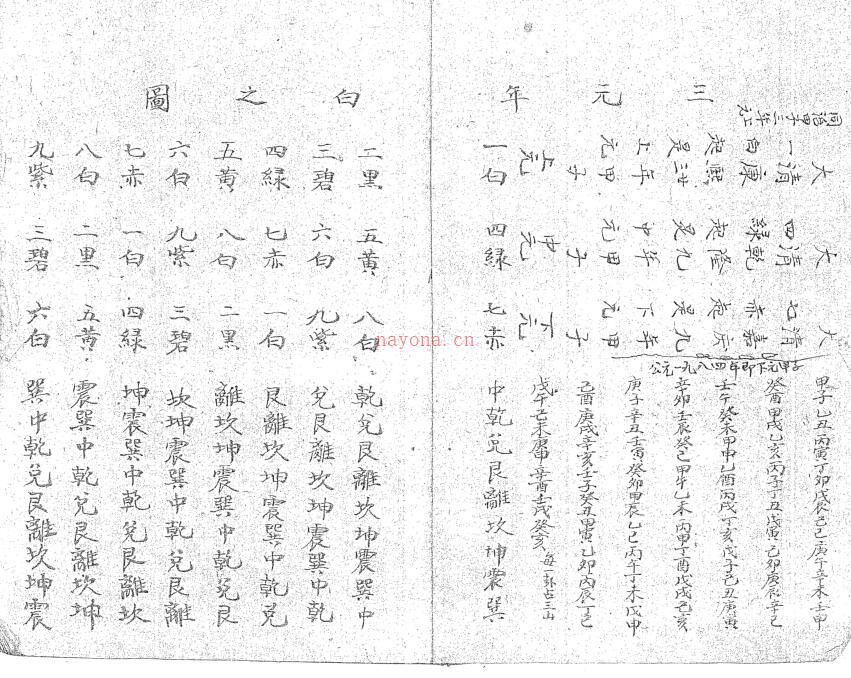 三元年白之圖
同治甲子三年上元
大清康熙廿三年甲子上元
一白起是上元
大清乾隆九年甲子中元
四綠起是中元
大清嘉庆九年甲子下元
七赤起是下元
公元一九八四年即下元甲子
甲子乙丑丙寅丁卯戊辰己巳庚午辛未壬申
癸酉甲戌乙亥丙子丁丑戊寅己卯庚辰辛巳
壬午癸未甲申乙酉丙戌丁亥戊子己丑庚寅
辛卯壬辰癸巳甲午乙未丙申丁酉戊戌己亥
庚子辛丑壬寅癸卯甲辰乙巳丙午丁未戊申
己酉庚戌辛亥壬子癸丑甲寅乙卯丙辰丁巳
戊午己未庚申辛酉壬戌癸亥 每卦占三山
一白 四綠 七赤 中乾兌艮離坎坤震巽
二黑 五黃 八白 乾兌艮離坎坤震巽中
三碧 六白 九紫 兌艮離坎坤震巽中乾
四綠 七赤 一白 艮離坎坤震巽中乾兌
五黃 八白 二黑 離坎坤震巽中乾兌艮
六白 九紫 三碧 坎坤震巽中乾兌艮離
七赤 一白 四綠 坤震巽中乾兌艮離坎
八白 二黑 五黃 震巽中乾兌艮離坎坤
九紫 三碧 六白 巽中乾兌艮離坎坤震
nayona.cn